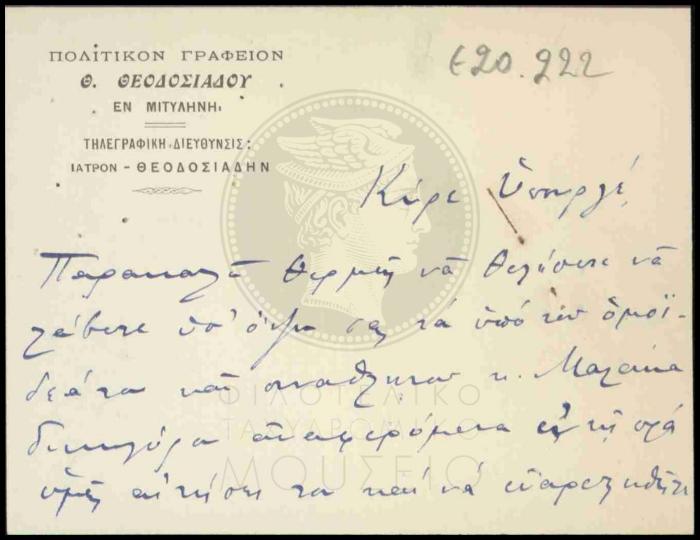 ΠΟΛΙΤΙΚΟΝ ΓΡΑΦΕΙΟΝ
Θ. ΘΕΟΔΟΣΙΑΔΟΥ
ΕΝ ΜΙΤΥΛΗΝΗ
ΤΗΛΕΓΡΑΦΙΚΗ ΔΙΕΥΘΥΝΣΙΣ:
ΙΑΤΡΟΝ - ΘΕΟΔΟΣΙΑΔΗΝ
620.222
Κύριε Ὑπουργέ,
Παρακαλῶ θερμῶς νὰ θελήσετε νὰ
λάβετε ὑπ' ὄψιν σας τὰ ὑπὸ τοῦ ὁμοϊ-
δεάτου καὶ συναθλητοῦ κ. Μαλάκα
δικηγόρου ἀναφερόμενα ἐν τῇ πρὸς
ὑμᾶς αἰτήσει του καὶ νὰ εὐαρεστηθῆτε
ΦΙΛΟΤΕΛΙΚΟ
ΤΑΧΥΔΡΟΜΙΚΟ
ΜΟΥΣΕΙΟ